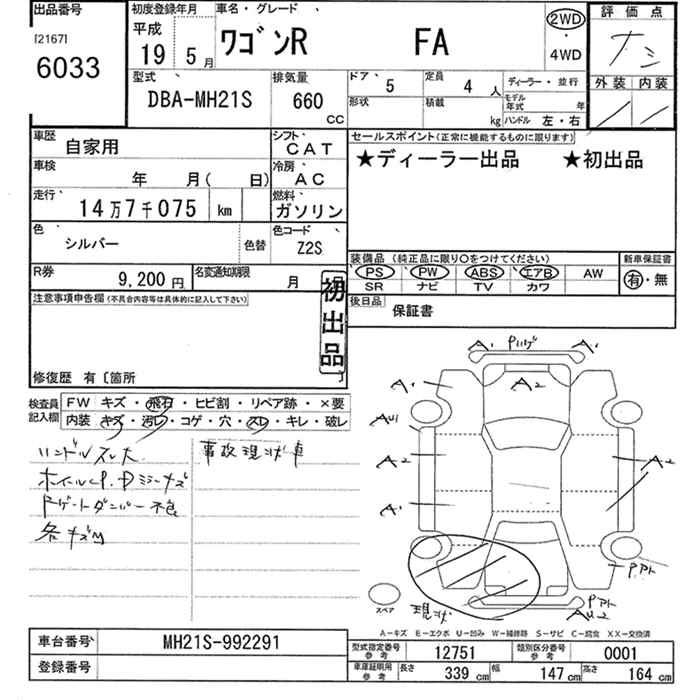 出品番号
[2167]
6033
初度登録年月
平成
19 5月
車名・グレード
ﾜｺﾞﾝR FA
2WD
・
4WD
評価点
ナシ
外装 内装
型式
DBA-MH21S
排気量
660
CC
ドア 5
定員 4 人
ディーラー・並行
形状
積載 kg
モデル年式 年
ハンドル 左・右
車歴 自家用
シフト CAT
車検 年 月( 日)
冷房 AC
走行 14万7千075 km
燃料 ガソリン
色 シルバー
色替
色コード Z2S
R券 9,200円
名変通知期限 月
セールスポイント(正常に機能するものに限ります)
★ディーラー出品 ★初出品
装備品 (純正品に限り○をつけてください)
新車保証書
PS PW ABS エアB AW
SR ナビ TV カワ
有・無
後日品
保証書
注意事項申告欄 (不具合内容等は具体的に記入して下さい)
初出品
修復歴 有〔箇所 〕
検査員記入欄
FW キズ・飛石・ヒビ割・リペア跡・×要
内装 キズ・汚レ・コゲ・穴・スレ・キレ・破レ
ハンドルスレ大
事故現状車
ホイルCP.Dミラーキズ
Rゲートダンパー不良
各キズ
A1 Pハゲ A1
A1 A2
AU1
A2 A2
A1
Pアト
Pアト
AU2
現状
スペア
A−キズ E−エクボ U−凹み W−補修跡 S−サビ C−腐食 XX−交換済
車台番号 MH21S-992291
登録番号
型式指定番号 参考 12751
類別区分番号 参考 0001
車庫証明用 参考 長さ 339 cm 幅 147 cm 高さ 164 cm